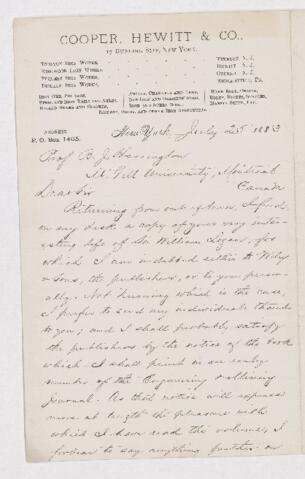 COOPER, HEWITT & CO.,
17 BURLING SLIP, NEW YORK.
TRENTON IRON WORKS,
RINGWOOD IRON WORKS,
PEQUEST IRON WORKS,
DURHAM IRON WORKS,
TRENTON N. J.
HEWITT N. J.
OXFORD N. J.
RIEGELSVILLE, PA.
ADDRESS
P. O. BOX 1463.
New York, July 25 1883
Prof B. J. Harrington
McGill University, Montreal
Canada
Dear Sir
Returning from out of town, I find,
on my desk a copy of your very inter-
esting life of Sir William Logan, for
which I am indebted either to Wiley
& Sons, the publishers, or to you person-
ally. Not knowing which is the case,
I prefer to send my individual thanks
to you; and I shall probably satisfy
the publishers by the notice of the book
which I shall print in an early
number of the Engineering & Mining
Journal. As that notice will express
more at length the pleasure with
which I have read the volume, I
forbear to say anything further on